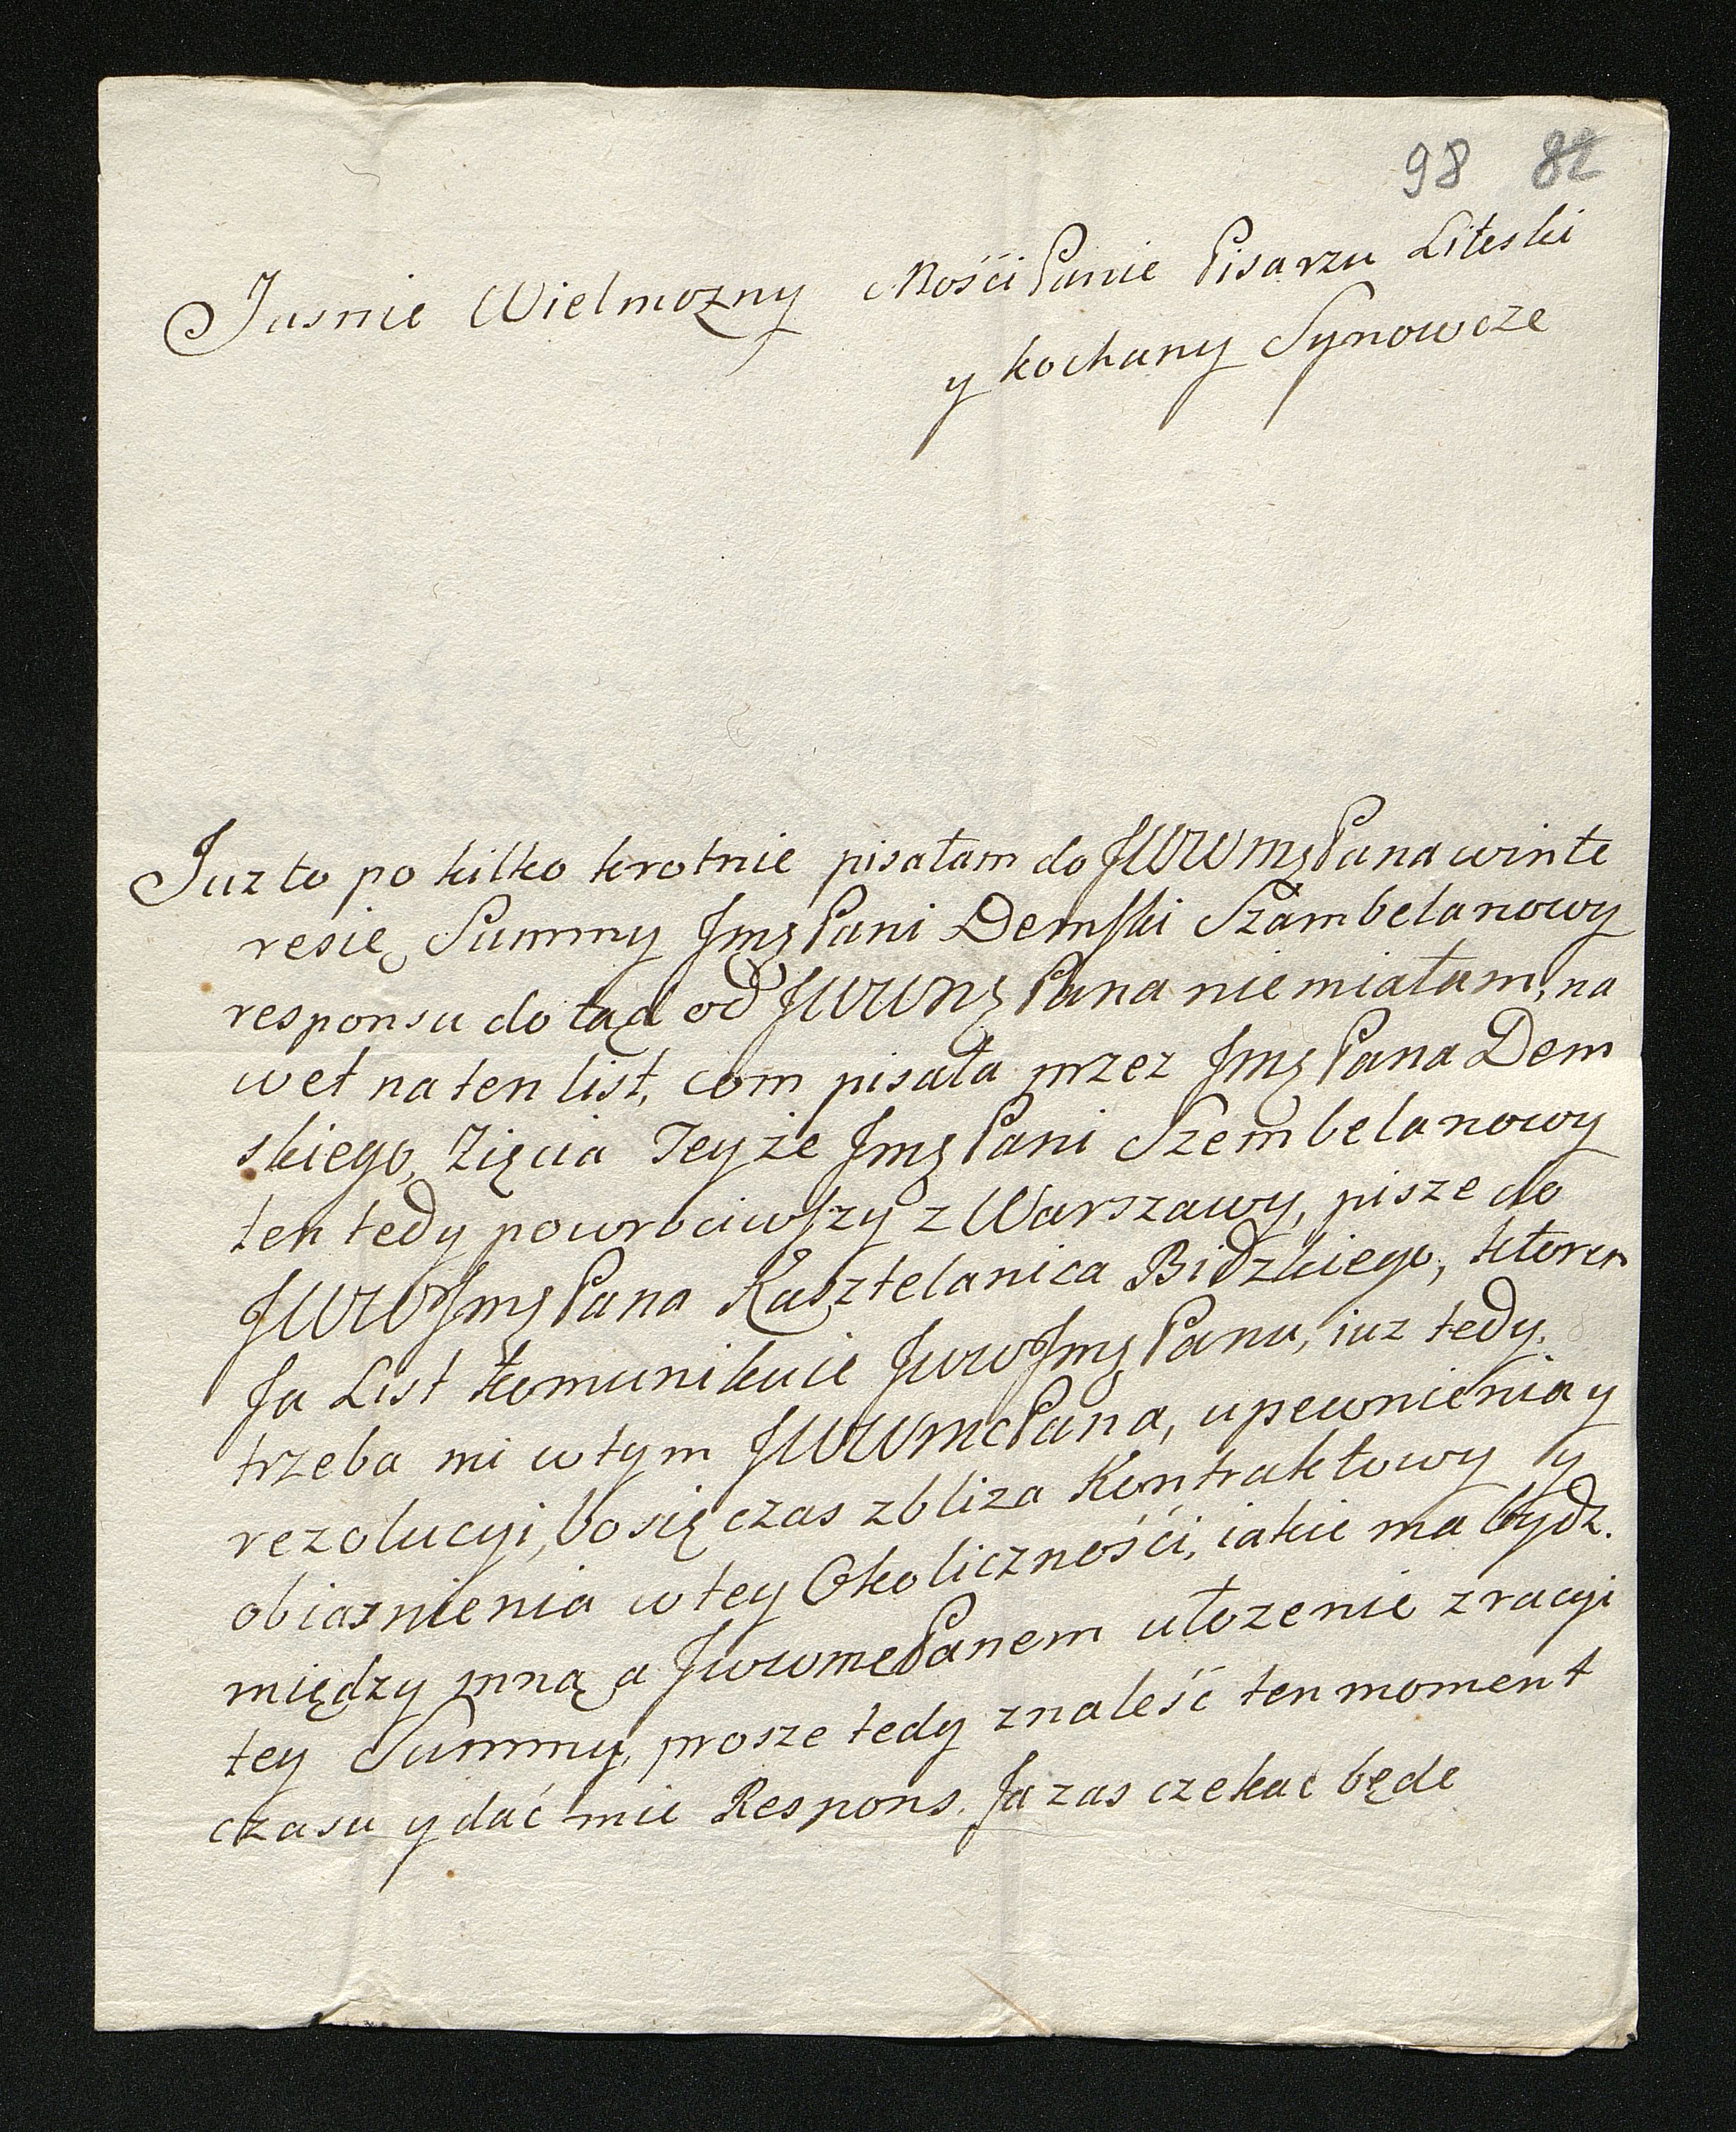 98 82
Jasnie Wielmozny Mośći Panie Pisarzu Liteski
y kochany Synowcze
Juz to po kilko krotnie pisałam do JWWMg Pana winte
resię Summy Jmg Pani Demski Szambelanowy
responsu do tąd od JWWMg Pana nie miałam, na
wet na ten list, com pisała przez Jmg Pana Dem
skiego, Zięcia Teyze Jmg Pani Szembelanowy
ten tedy powrociwszy z Warszawy, pisze do
JWW Jmg Pana Kasztelanica Bidzkiego, ktoren
Ja List komunikuie Jww Jmg Panu, iuz tedy.
trzeba mi wtym JWWmcPana, upewnienia y
rezolucyi, bo się czas zbliza Kontraktowy y
obiasnienia wtey Okolicznośći, iakie ma bydz.
między mną a JwwmcPanem ułozenie z racyi
tey Summy, prosze tedy znaleść ten moment
czasu y dać mie Respons. Ja zas czekac będe